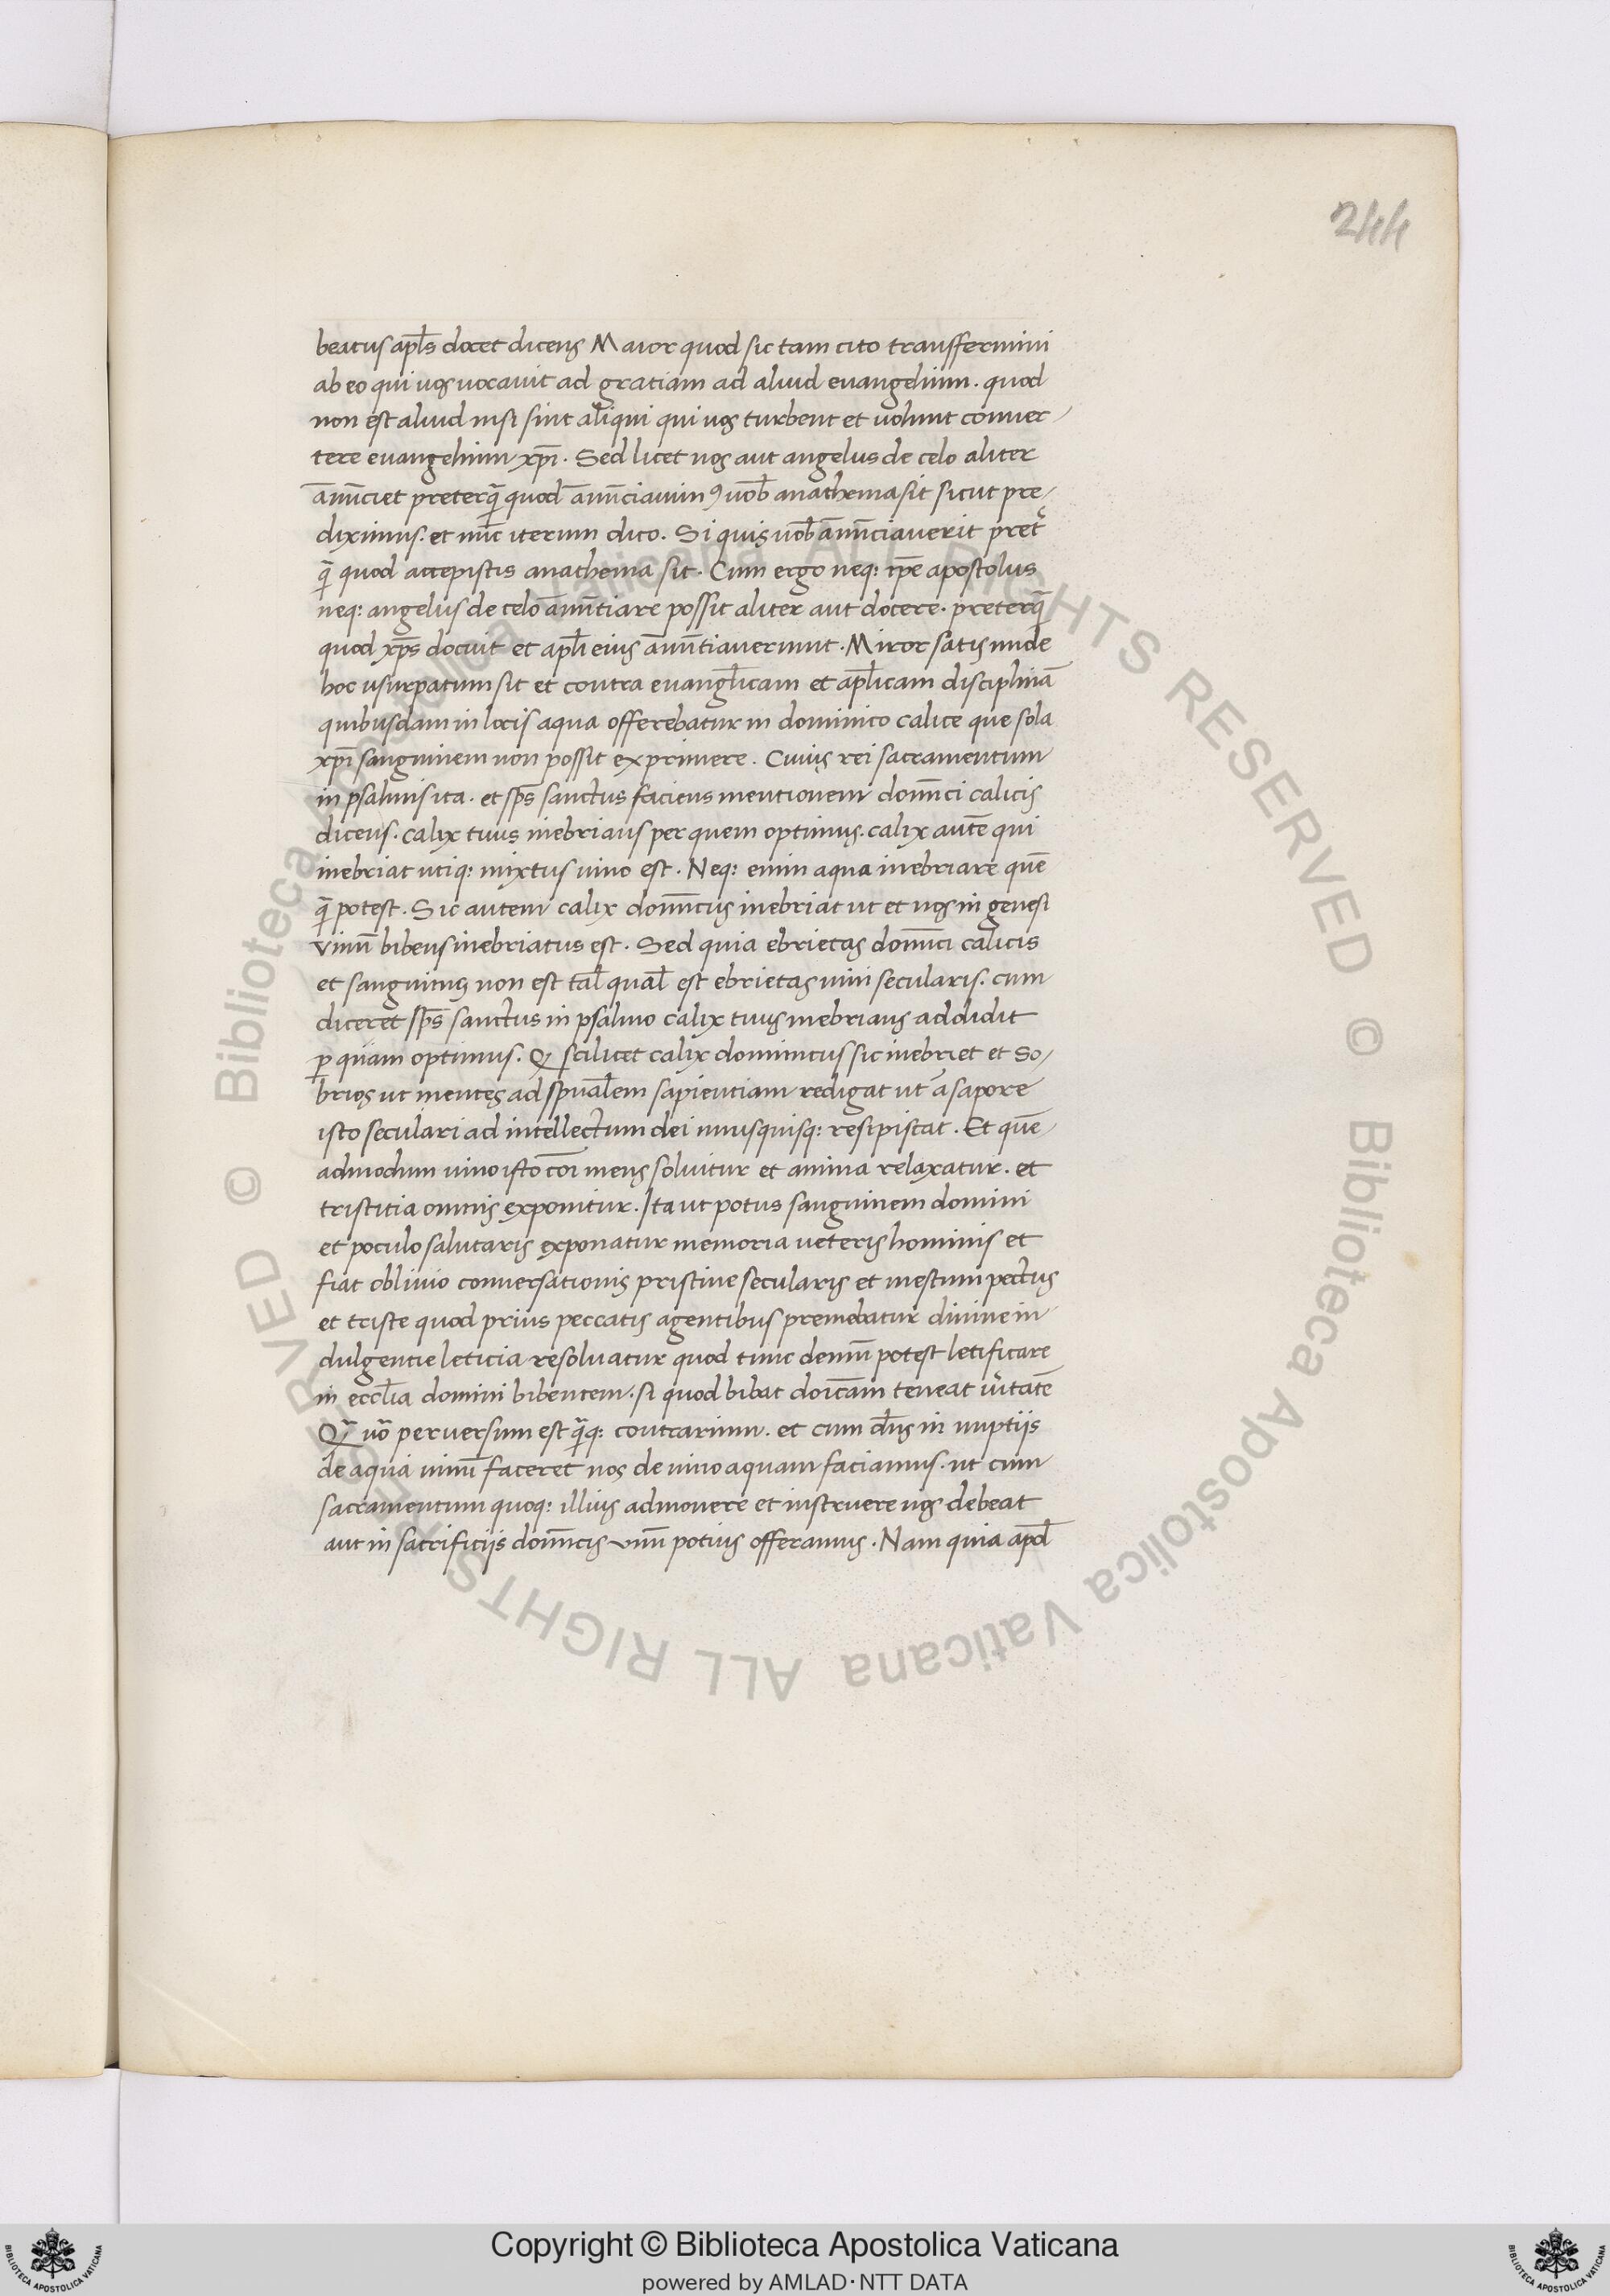 244
beatus apl̄s docet dicens Maior quod sic tam cito transffermini
ab eo qui uos uocauit ad gratiam ad aliud euangelium. quod
non est aliud nisi sint aliqui qui uos turbent et uolunt conuer-
tere euangelium xp̄i. Sed licet nos aut angelus de celo aliter
an̄ūciet preterq̄ quod an̄ūciauimꝰ uob̄ anathema sit sicut pre-
diximus. et nūc iterum dico. Si quis uob̄ an̄ūciauerit pret̉
q̄ quod accepistis anathema sit. Cum ergo neq: ip̄e apostolus
neq: angelus de celo an̄ūtiare possit aliter aut docere. preterq̄
quod xp̄s docuit et apl̄i eius an̄ūtiauerunt. Miror satis unde
hoc usurpatum sit et contra euangl̄icam et apl̄icam disciplinā
quibusdam in locis aqua offerebatur in dominico calice que sola
xp̄i sanguinem non possit exprimere. Cuius rei sacramentum
in psalmis ita. et sp̄s sanctus faciens mentionem domīci calicis
dicens. calix tuus inebrians per quem optimus. calix autē qui
inebriat utiq: mixtus uino est. Neq: enim aqua inebriare quē
q̄ potest. Sic autem calix domīcus inebriat ut et uos in genesi
vinū bibens inebriatus est. Sed quia ebrietas domīci calicis
et sanguinꝰ non est tal̄ qual̄ est ebrietas uini secularis. cum
diceret sp̄s sanctus in psalmo calix tuus inebrians addidit
p̱ quam optimus. Q scilicet calix dominicus sic inebriet et so-
brios ut mentes ad sp̄ual̄em sapientiam redigat ut a sapore
isto seculari ad intellectum dei unusquisq: resipiscat. Et quē-
admodum uino isto cōi mens soluitur et anima relaxatur. et
tristitia omnis exponitur. Ita ut potus sanguinem domini
et poculo salutaris exponatur memoria ueteris hominis et
fiat obliuio conuersationis pristine secularis et mestum pectus
et triste quod prius peccatis agentibus premebatur diuine in
dulgentie leticia resoluatur quod tunc demū potest letificare
in eccl̄ia domini bibentem. si quod bibat doīcam teneat ūitatē
Q̄ uō peruersum est q̄q: contrarium. et cum dn̄s in nuptijs
de aqua uinū faceret nos de uino aquam faciamus. ut cum
sacramentum quoq: illius admonere et instruere nos debeat
aut in sacrificijs domīcis uinū potius offeramus. Nam quia apd̄
© Biblioteca Apostolica Vaticana ALL RIGHTS RESERVED
© Biblioteca Apostolica Vaticana ALL RIGHTS RESERVED
Copyright © Biblioteca Apostolica Vaticana
powered by AMLAD·NTT DATA
BIBLIOTECA APOSTOLICA VATICANA
BIBLIOTECA APOSTOLICA VATICANA